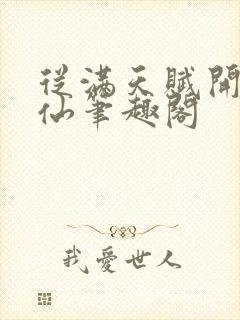 從滿天賦開
仙筆趣閣
我愛世人